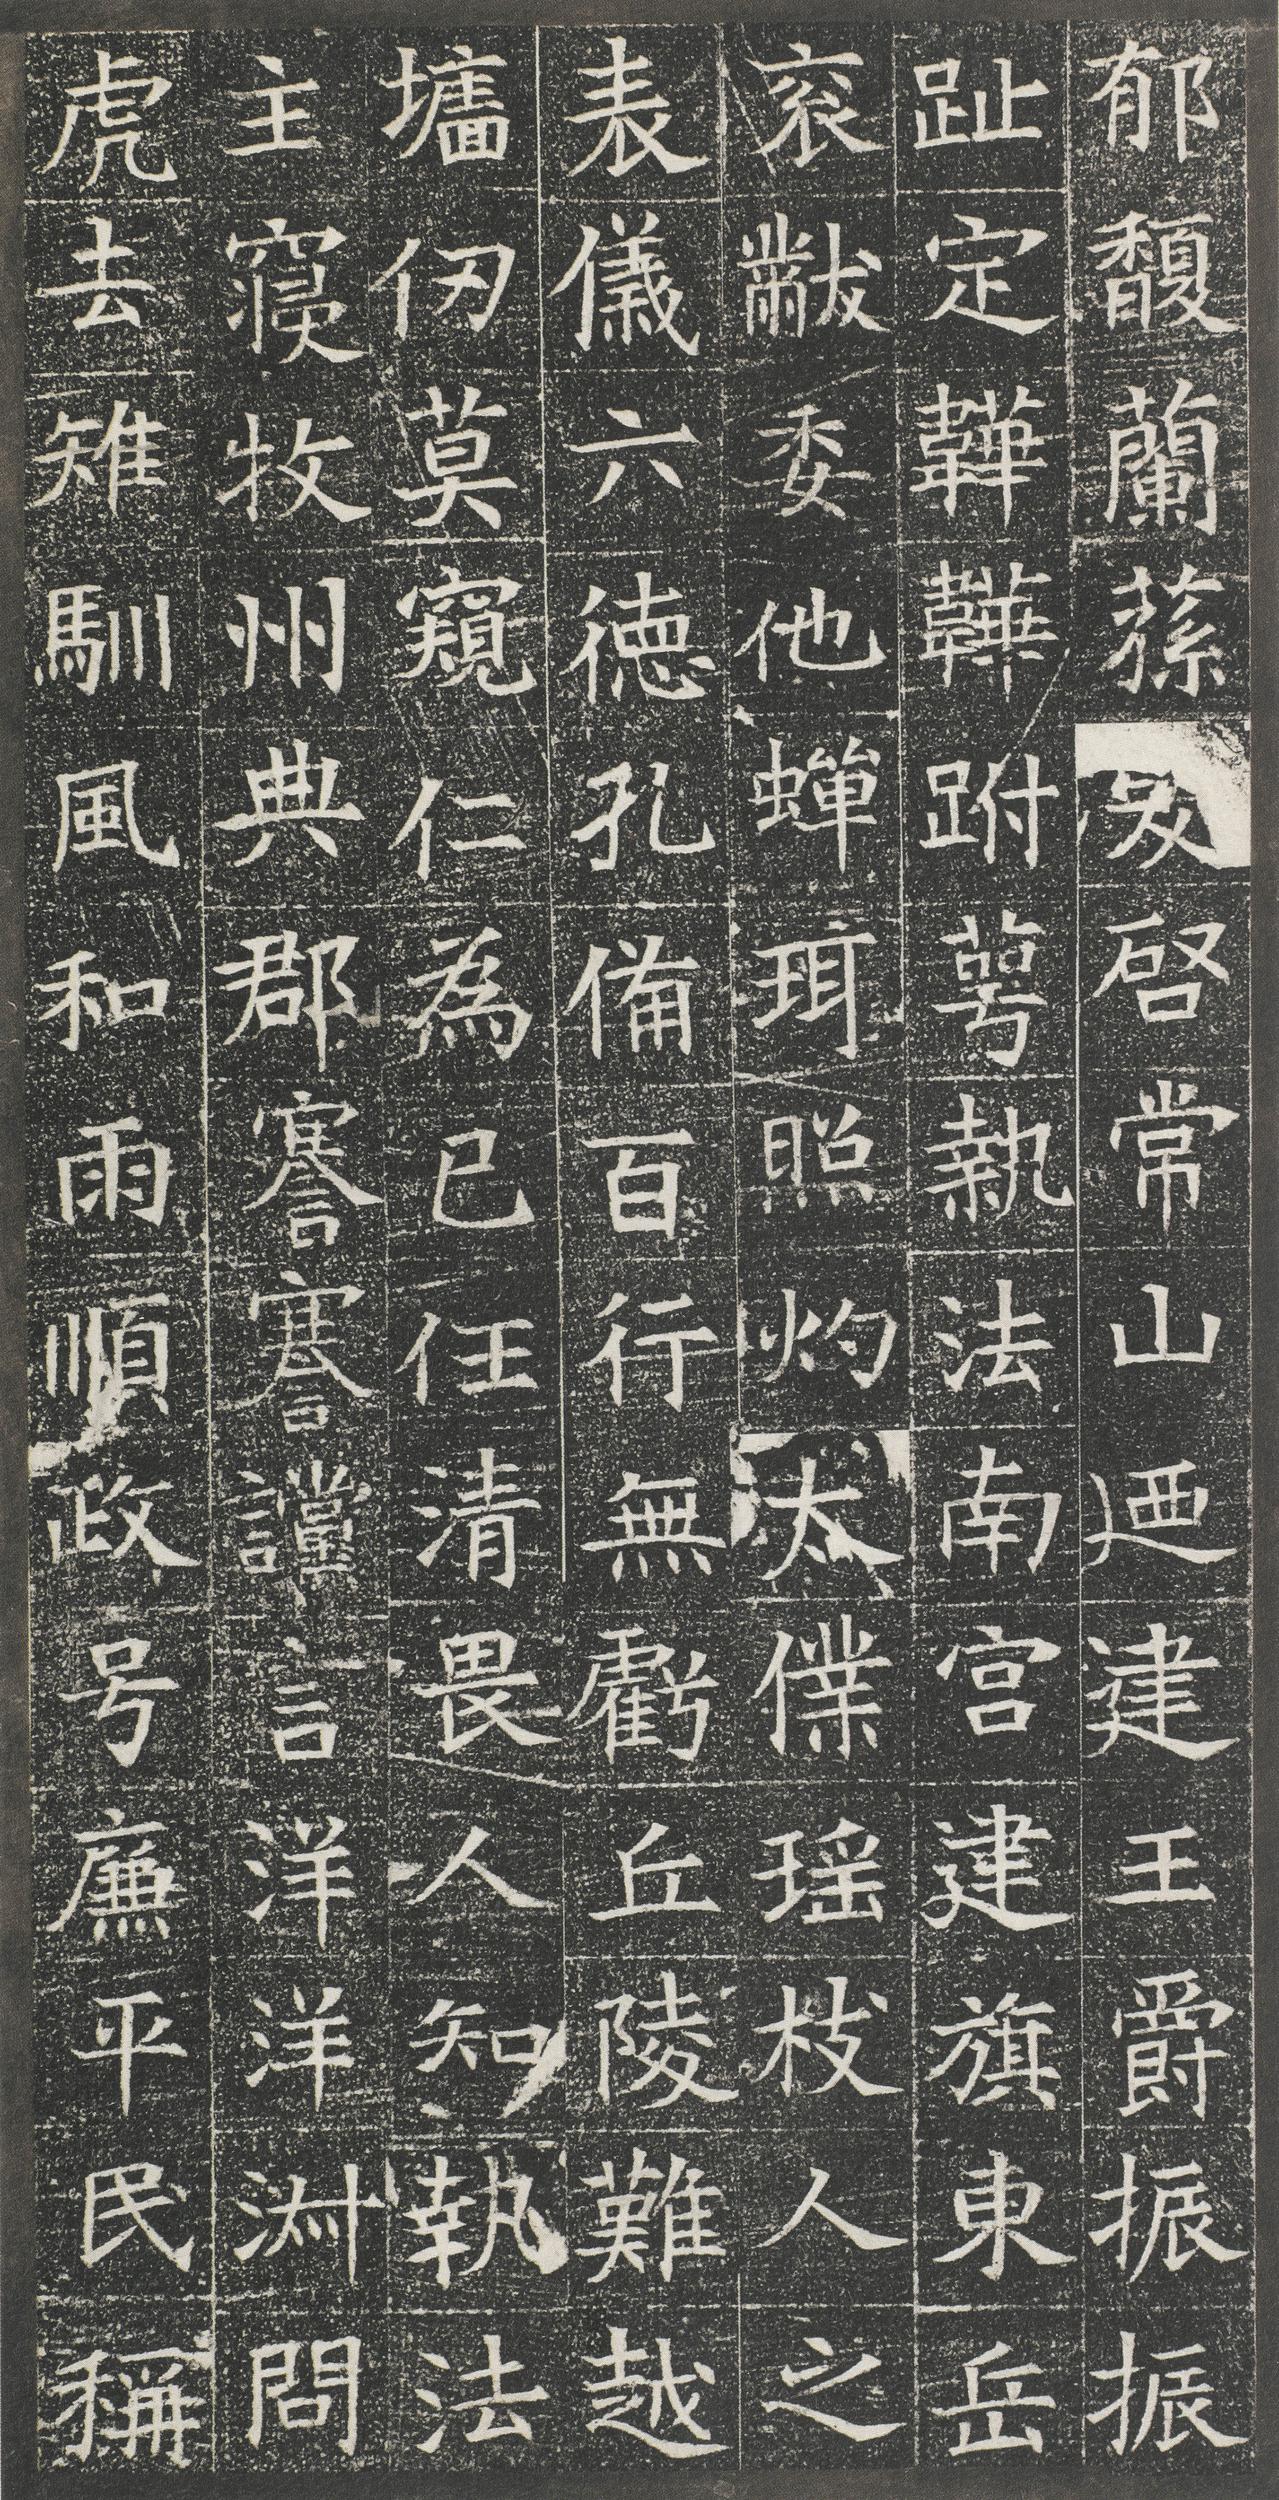 郁馥蘭蓀爰啓常山迺建王爵振振
趾定韡韡跗萼執法南宮建旗東岳
衮黻委他蟬珥照灼太僕瑶枝人之
表儀六德孔備百行無虧丘陵難越
墻仞莫窺仁為己任清畏人知執法
主寢牧州典郡謇謇讜言洋洋淵問
虎去雉馴風和雨順政号廉平民稱